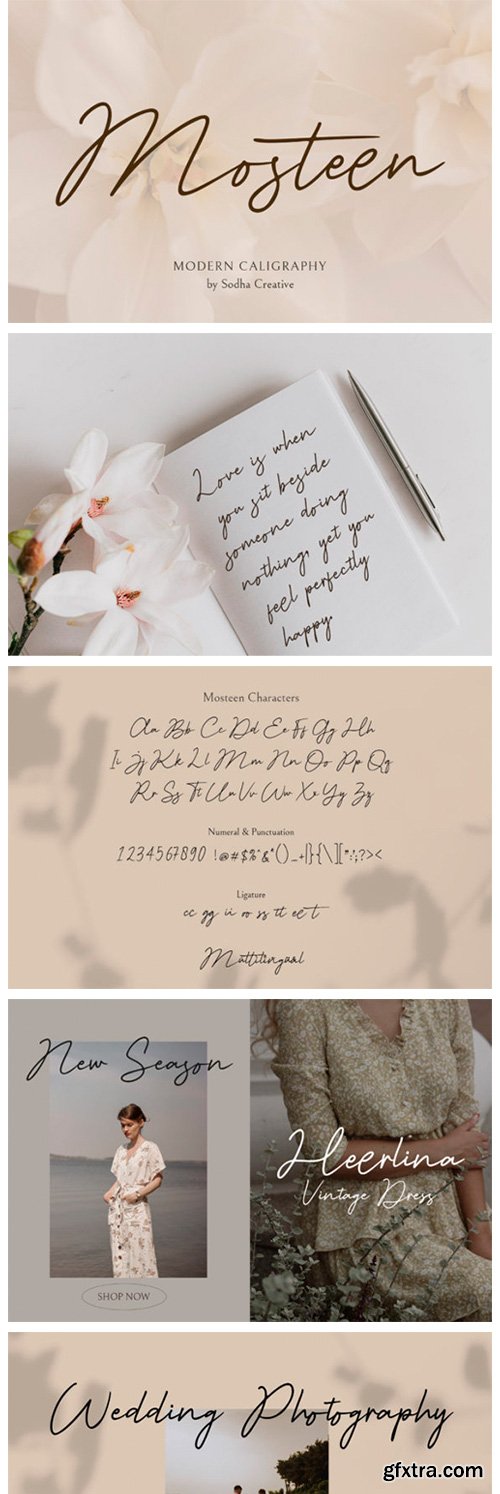 Mosteen
MODERN CALIGRAPHY
by Sodha Creative
Love is when
you sit beside
someone doing
nothing, yet you
feel perfectly
happy.
Mosteen Characters
Aa Bb Cc Dd Ee Ff Gg Hh
Ii Jj Kk Ll Mm Nn Oo Pp Qq
Rr Ss Tt Uu Vv Ww Xx Yy Zz
Numeral & Punctuation
1234567890 !@#$%^&*()_+|}{\][":;?><
Ligature
cc gg ii oo ss tt ee t
Multilingual
New Season
SHOP NOW
Heerlina
Vintage Dress
Wedding Photography
gfxtra.com